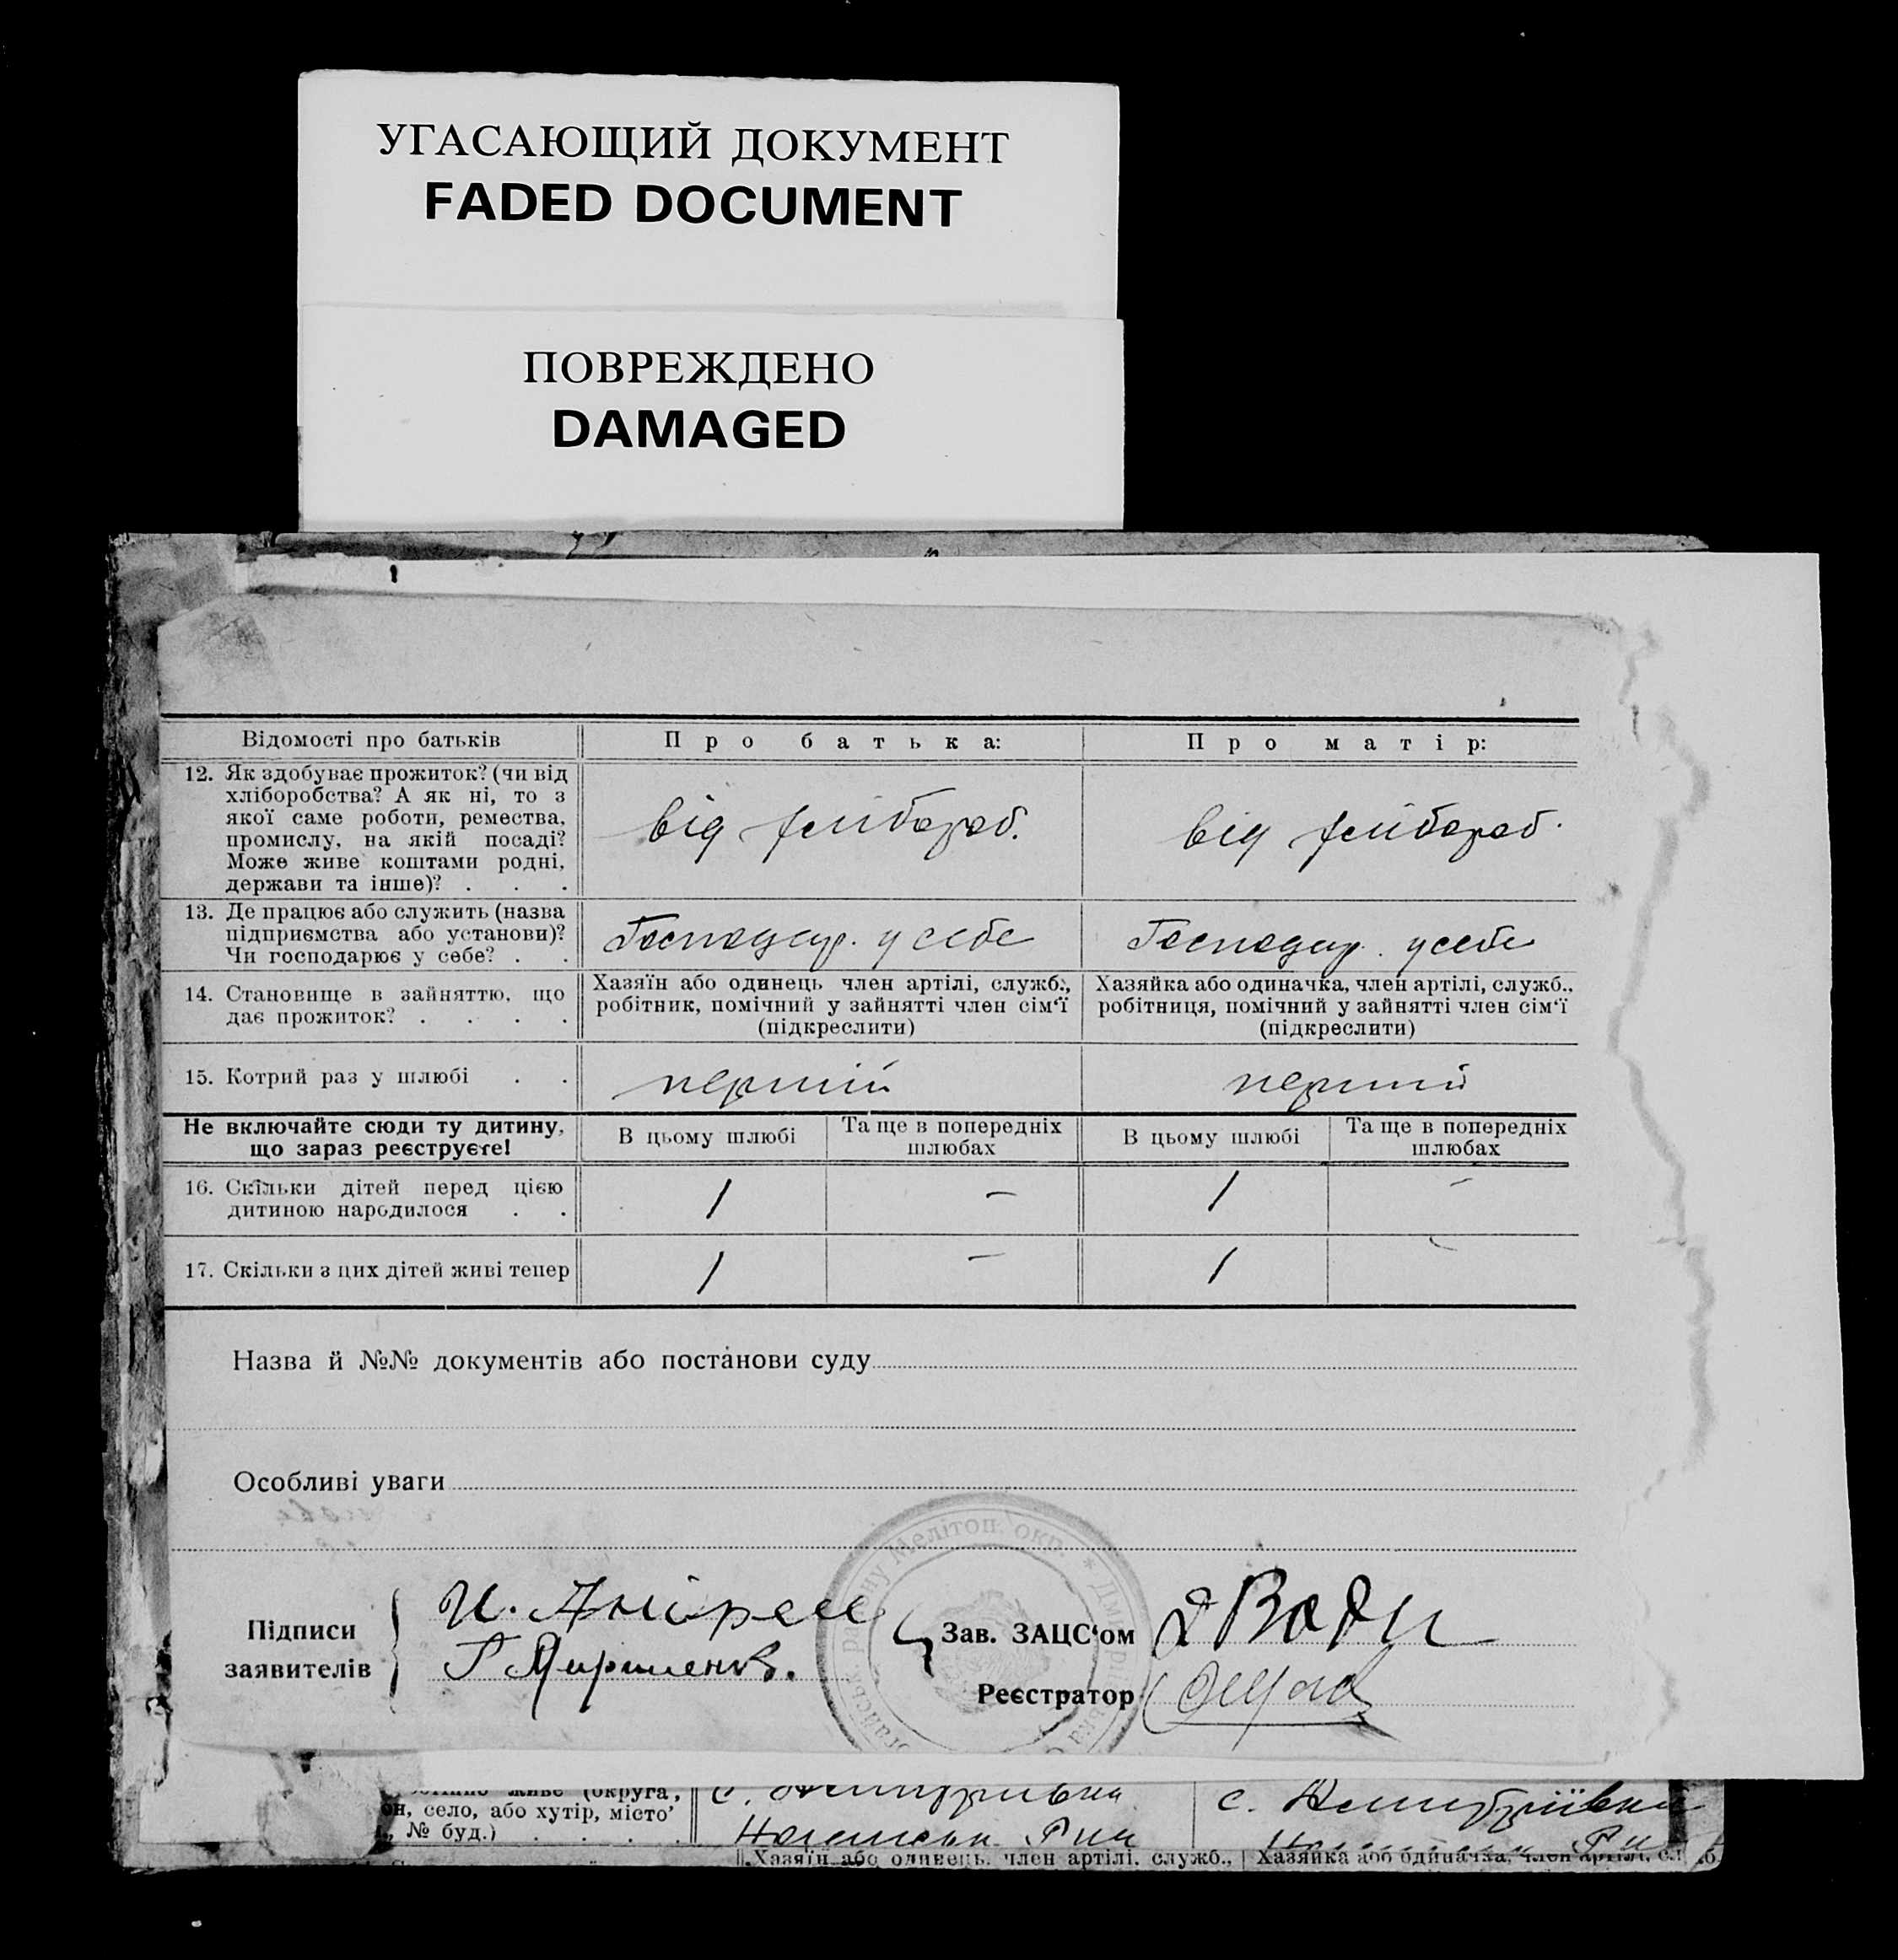 УГАСАЮЩИЙ ДОКУМЕНТ
FADED DOCUMENT
ПОВРЕЖДЕНО
DAMAGED
Відомості про батьків
Про батька:
Про матір:
12. Як здобуває прожиток? (чи від
хліборобства? А як ні, то з
якої саме роботи, ремества,
промислу, на якій посаді?
Може живе коштами родні,
держави та інше)? . . .
від хлібороб.
від хлібороб.
13. Де працює або служить (назва
підприємства або установи)?
Чи господарює у себе? . .
Господар. у себе
Господар. у себе
14. Становище в зайняттю, що
дає прожиток? . . . .
Хазяїн або одинець член артілі, служб.,
робітник, помічний у зайнятті член сім'ї
(підкреслити)
Хазяйка або одиначка, член артілі, служб.,
робітниця, помічний у зайнятті член сім'ї
(підкреслити)
15. Котрий раз у шлюбі . .
перший
перший
Не включайте сюди ту дитину,
що зараз реєструєте!
В цьому шлюбі
Та ще в попередніх
шлюбах
В цьому шлюбі
Та ще в попередніх
шлюбах
16. Скільки дітей перед цією
дитиною народилося . .
1 — 1 —
17. Скільки з цих дітей живі тепер
1 — 1 —
Назва й №№ документів або постанови суду
Особливі уваги
Підписи
заявителів
Зав. ЗАЦС'ом
Реєстратор
району Мелітоп. окр. * Дмитрівська
живе (округа,
он, село, або хутір, місто
№ буд.) . . . .
с. Дмитрівка
с. Дмитріївка
Хазяїн або одинець, член артілі, служб.,
Хазяйка або одиначка, член артілі,